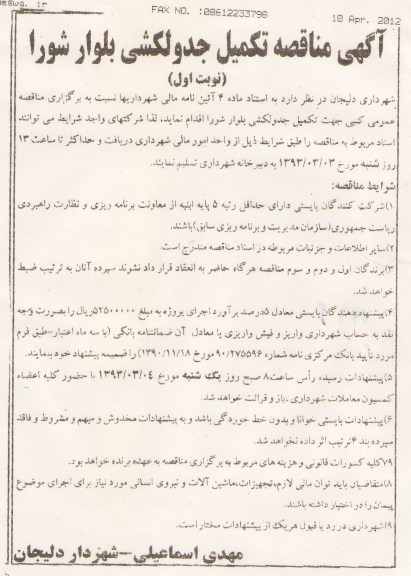 neswq. ir
FAX NO. :08612233798
10 Apr. 2012
آگهی مناقصه تکمیل جدولکشی بلوار شورا
(نوبت اول)
شهرداری دلیجان در نظر دارد به استناد ماده ۴ آئین نامه مالی شهرداریها نسبت به برگزاری مناقصه
عمومی کتبی جهت تکمیل جدولکشی بلوار شورا اقدام نماید، لذا شرکتهای واجد شرایط می توانند
اسناد مربوط به مناقصه را طبق شرایط ذیل از واحد امور مالی شهرداری دریافت و حداکثر تا ساعت ۱۳
روز شنبه مورخ ۱۳۹۳/۰۳/۰۳ به دبیرخانه شهرداری تسلیم نمایند.
شرایط مناقصه:
۱)شرکت کنندگان بایستی دارای حداقل رتبه ۵ پایه ابنیه از معاونت برنامه ریزی و نظارت راهبردی
ریاست جمهوری(سازمان مدیریت و برنامه ریزی سابق)باشند.
۲)سایر اطلاعات و جزئیات مربوطه در اسناد مناقصه مندرج است.
۳)برندگان اول و دوم و سوم مناقصه هرگاه حاضر به انعقاد قرار داد نشوند سپرده آنان به ترتیب ضبط
خواهد شد.
۴)پیشنهاد دهندگان بایستی معادل ۵درصد برآورد اجرای پروژه به مبلغ ۵۲۵۰۰۰۰۰ریال را بصورت وجه
نقد به حساب شهرداری واریز و فیش واریزی یا معادل آن ضمانتنامه بانکی (با سه ماه اعتبار-طبق فرم
مورد تأیید بانک مرکزی نامه شماره ۹۰/۲۷۵۵۹۶ مورخ ۱۳۹۰/۱۱/۱۸) را ضمیمه پیشنهاد خود بنمایند.
۵)پیشنهادات رسیده رأس ساعت۸ صبح روز یک شنبه مورخ ۱۳۹۳/۰۳/۰۴ با حضور کلیه اعضاء
کمسیون معاملات شهرداری ،باز و قرائت خواهد شد.
۶)پیشنهادات بایستی خوانا و بدون خط خوردگی باشد و به پیشنهادات مخدوش و مبهم و مشروط و فاقد
سپرده بند ۴ترتیب اثر داده نخواهد شد.
۷)کلیه کسورات قانونی و هزینه های مربوط به برگزاری مناقصه به عهده برنده خواهد بود.
۸)متقاضیان باید توان مالی لازم،تجهیزات،ماشین آلات و نیروی انسانی مورد نیاز برای اجرای موضوع
پیمان را در اختیار داشته باشند.
۹)شهرداری در رد یا قبول هریک از پیشنهادات مختار است.
مهدی اسماعیلی-شهردار دلیجان